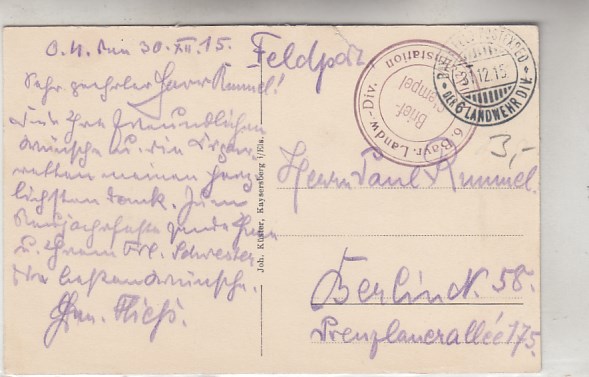 O.U. den 30.XII.15.
Sehr geehrter Herr Kummel!
Für Ihre freundlichen
Wünsche u. die Zigar
retten meinen herz
lichsten Dank. Zum
Neujahrsfeste sende Ihnen
u. Ihrem Frl. Schwester
die besten Wünsche.
Joh. Küster, Kaysersberg i/Els.
Feldpost
6. Bayr. Landw.-Div.
Brief-
stempel
12.15.
DER 6. LANDWEHR DIV.
3,-
Herrn Paul Kummel.
Berlin 58.
Prenzlauerallée 175.